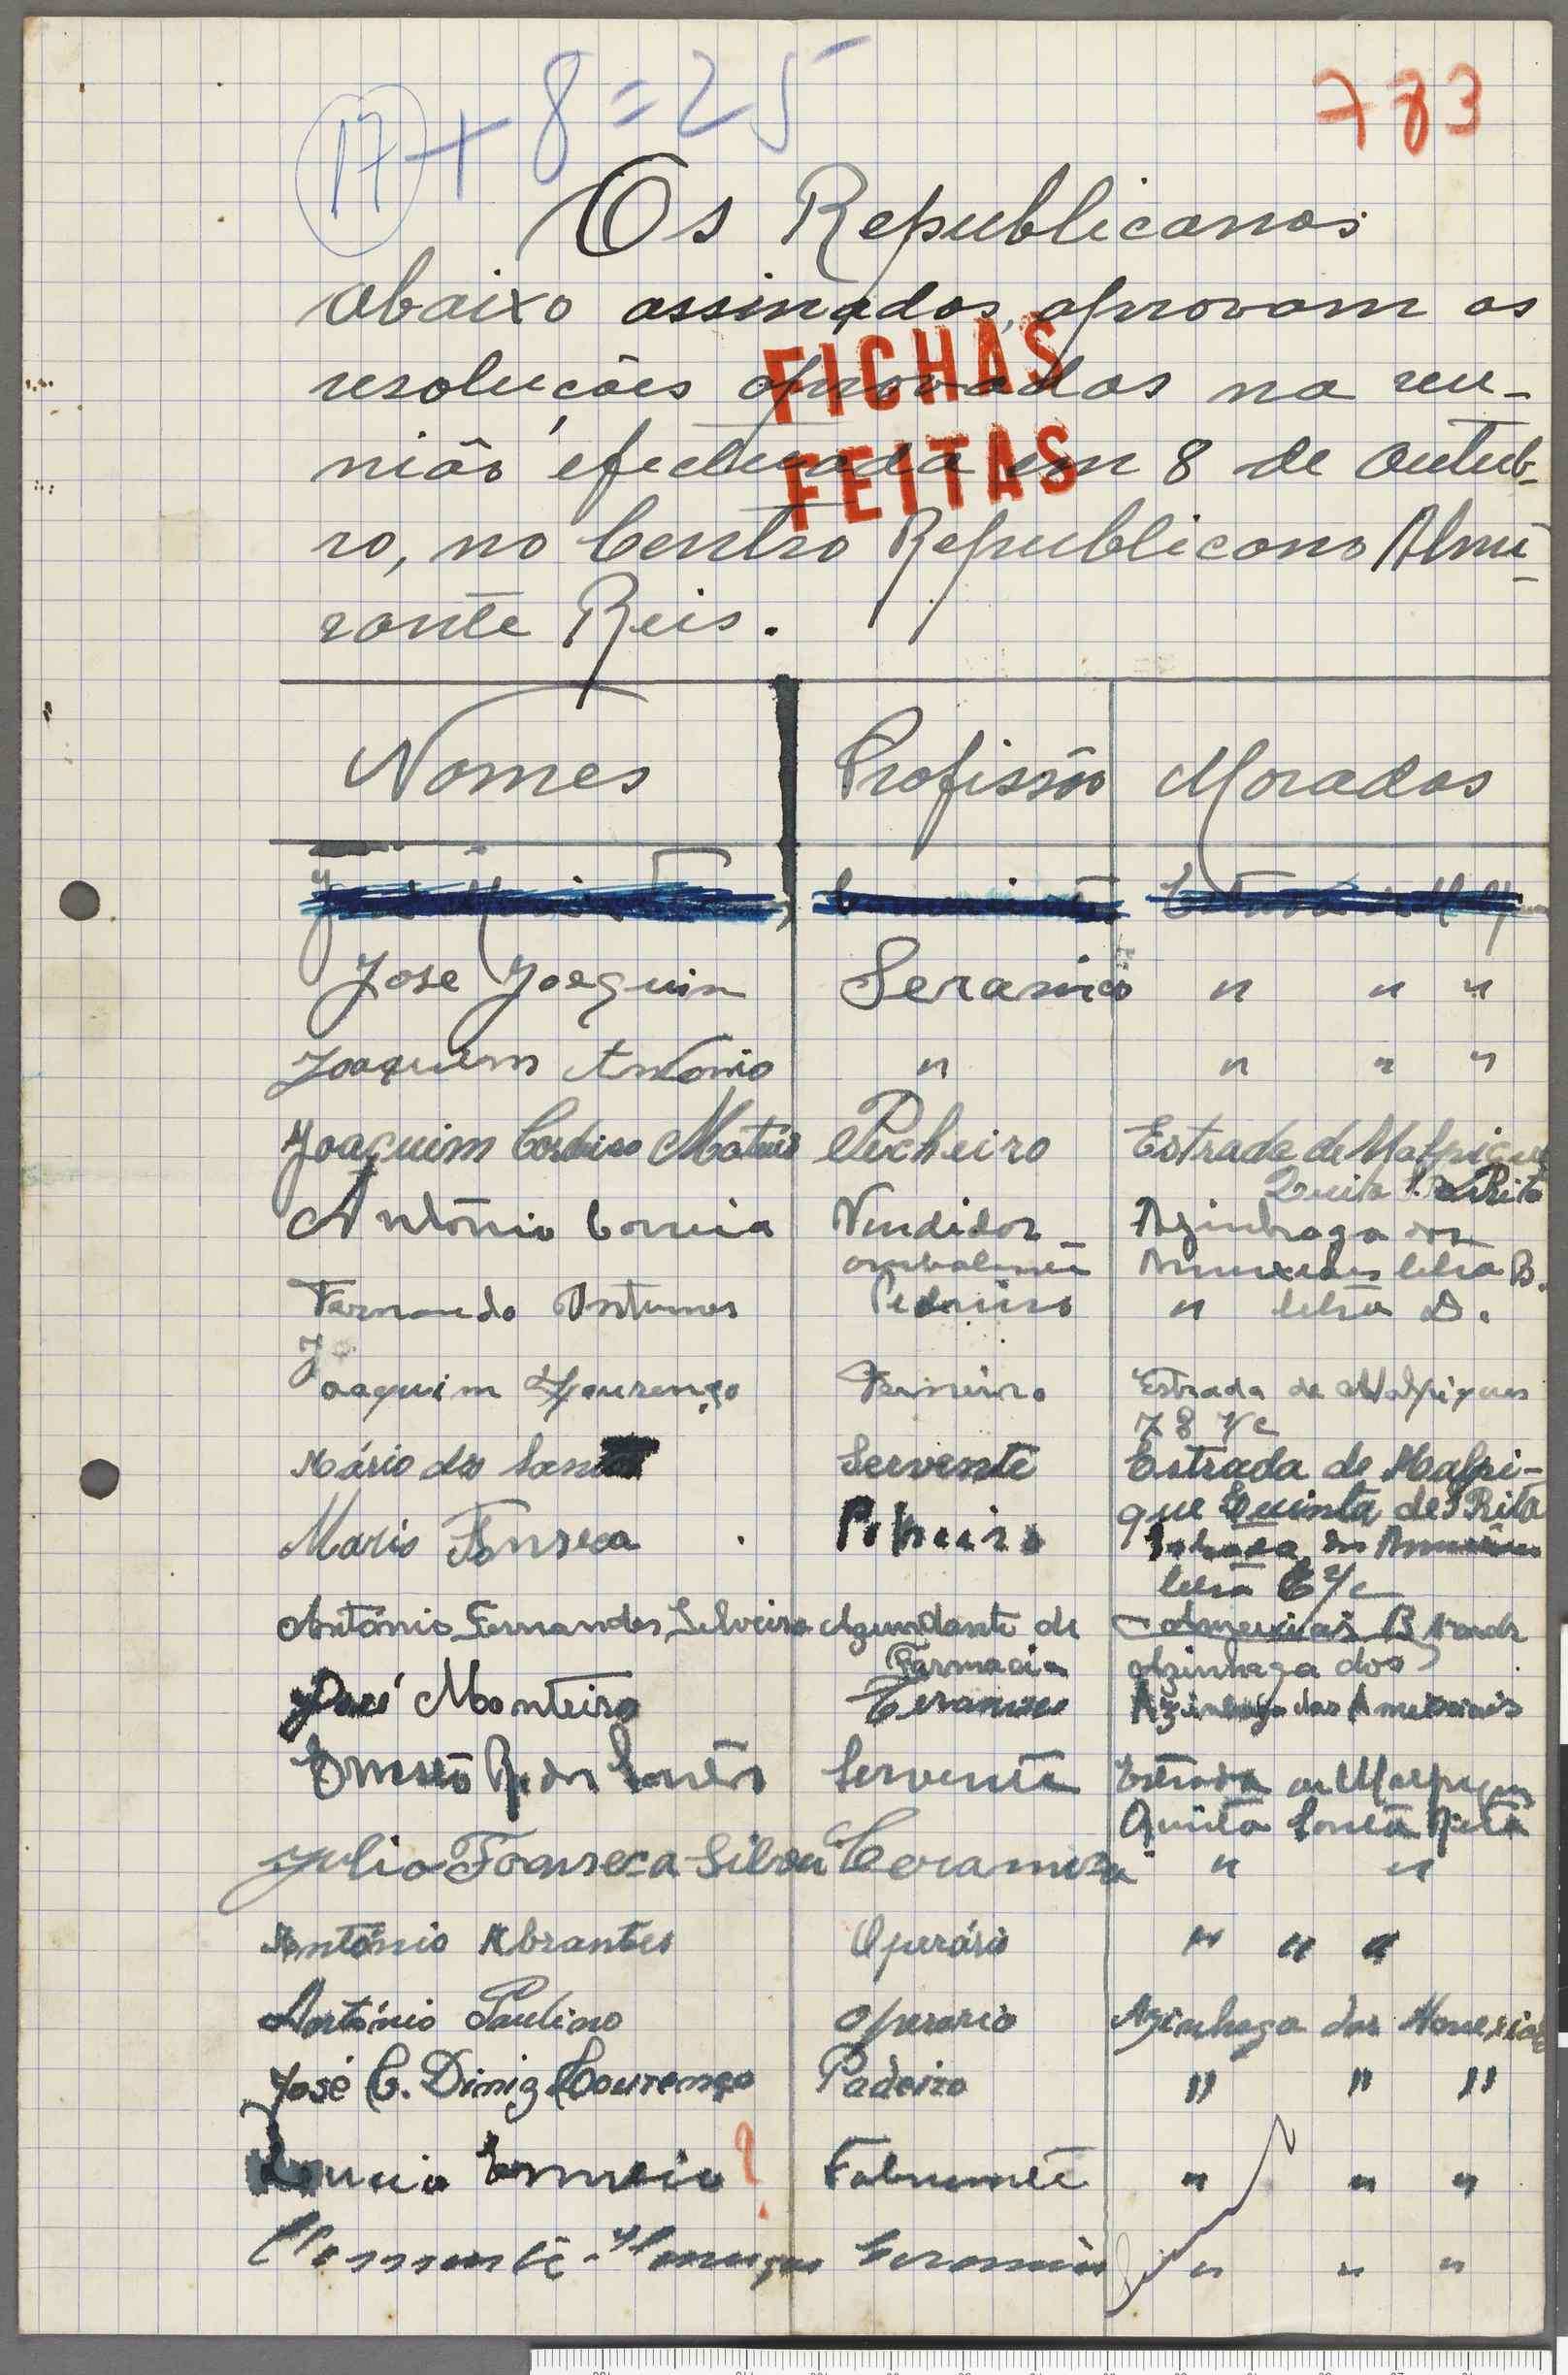 17 + 8 = 25
783
Os Republicanos
abaixo assinados, aprovam as
resoluções aprovadas na reu-
nião efectuada em 8 de Outub-
ro, no Centro Republicano Almi-
rante Reis.
FICHAS
FEITAS
Nomes Profissão Moradas
José Joaquim Seramico " " "
Joaquim António " " " "
Joaquim Cardoso Mateus Pucheiro Estrada de Malpique
Quita Rita
António Correia Vendidor Azinhaga dos
ambulante letra B.
Fernando Antunes Pedreiro " letra D.
Joaquim Lourenço Estrada de Malpiques
78 r/c
Mário dos Servente Estrada de Malpi-
que Quinta de S Rita
Mario Fonseca
letra r/c
António Fernandes Silveira Agundante de B
Farmacia Azinhaga dos
José Monteiro Azinhaga das Ameixiais
Ernesto R. dos Santos Servente Estrada de Malpique
Quita Santa Rita
Julio Fonseca Silva " "
António Abrantes Operário " " "
António Paulino Operario Azinhaga das
José C. Diniz Lourenço Padeiro " " "
? " " "
" " "